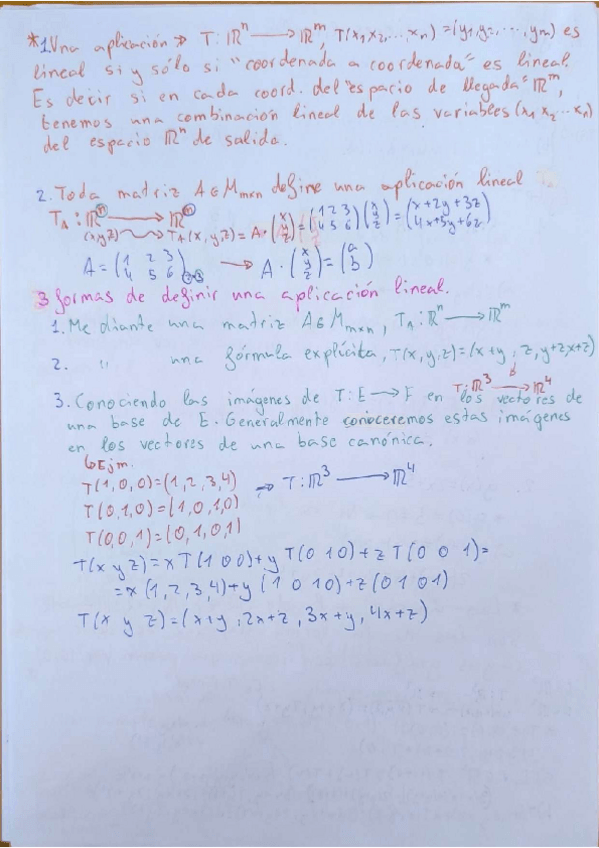 *1. Una aplicación → T: ℝⁿ → ℝᵐ, T(x₁ x₂, ... xₙ) = (y₁, y₂, ..., yₘ) es
lineal si y sólo si "coordenada a coordenada" es lineal.
Es decir si en cada coord. del "espacio de llegada" ℝᵐ,
tenemos una combinación lineal de las variables (x₁ x₂ ... xₙ)
del espacio ℝⁿ de salida.
2. Toda matriz A∈Mₘₓₙ define una aplicación lineal
T_A: ℝⁿ → ℝᵐ
(x,y,z) → T_A(x, y, z) = A · (x y z) = (1 2 3 / 4 5 6)(x y z) = (x+2y+3z / 4x+5y+6z)
A = (1 2 3 / 4 5 6)₂ₓ₃ → A · (x y z) = (a b)
3 formas de definir una aplicación lineal.
1. Mediante una matriz A∈Mₘₓₙ, T_A: ℝⁿ → ℝᵐ
2. " una fórmula explícita, T(x,y,z)=(x+y, z, y+z, x+z)
T: ℝ³ → ℝ⁴
3. Conociendo las imágenes de T: E → F en los vectores de
una base de E. Generalmente conoceremos estas imágenes
en los vectores de una base canónica.
↳ Ejm.
T(1,0,0)=(1,2,3,4) → T: ℝ³ → ℝ⁴
T(0,1,0)=(1,0,1,0)
T(0,0,1)=(0,1,0,1)
T(x y z)=x T(1 0 0)+y T(0 1 0)+z T(0 0 1)=
=x(1,2,3,4)+y(1 0 1 0)+z(0 1 0 1)
T(x y z)=(x+y, 2x+z, 3x+y, 4x+z)